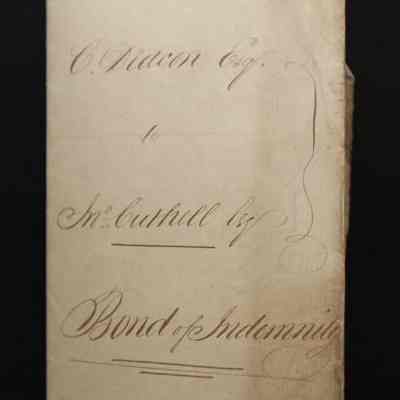 C. Deacon Esq.
to
Jno. Cuthell Esq
Bond of Indemnity